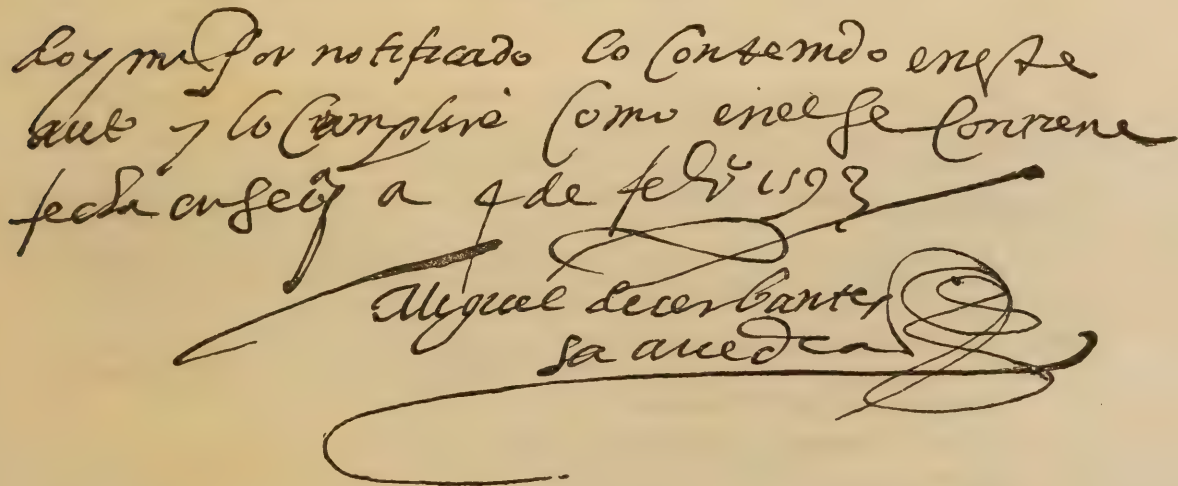 doyme por notificado lo contenido eneste
auto y lo cumplire como enel se contiene
fecha en seuᵃ a 4 de febrº 1593
Miguel decerbantes
saauedra